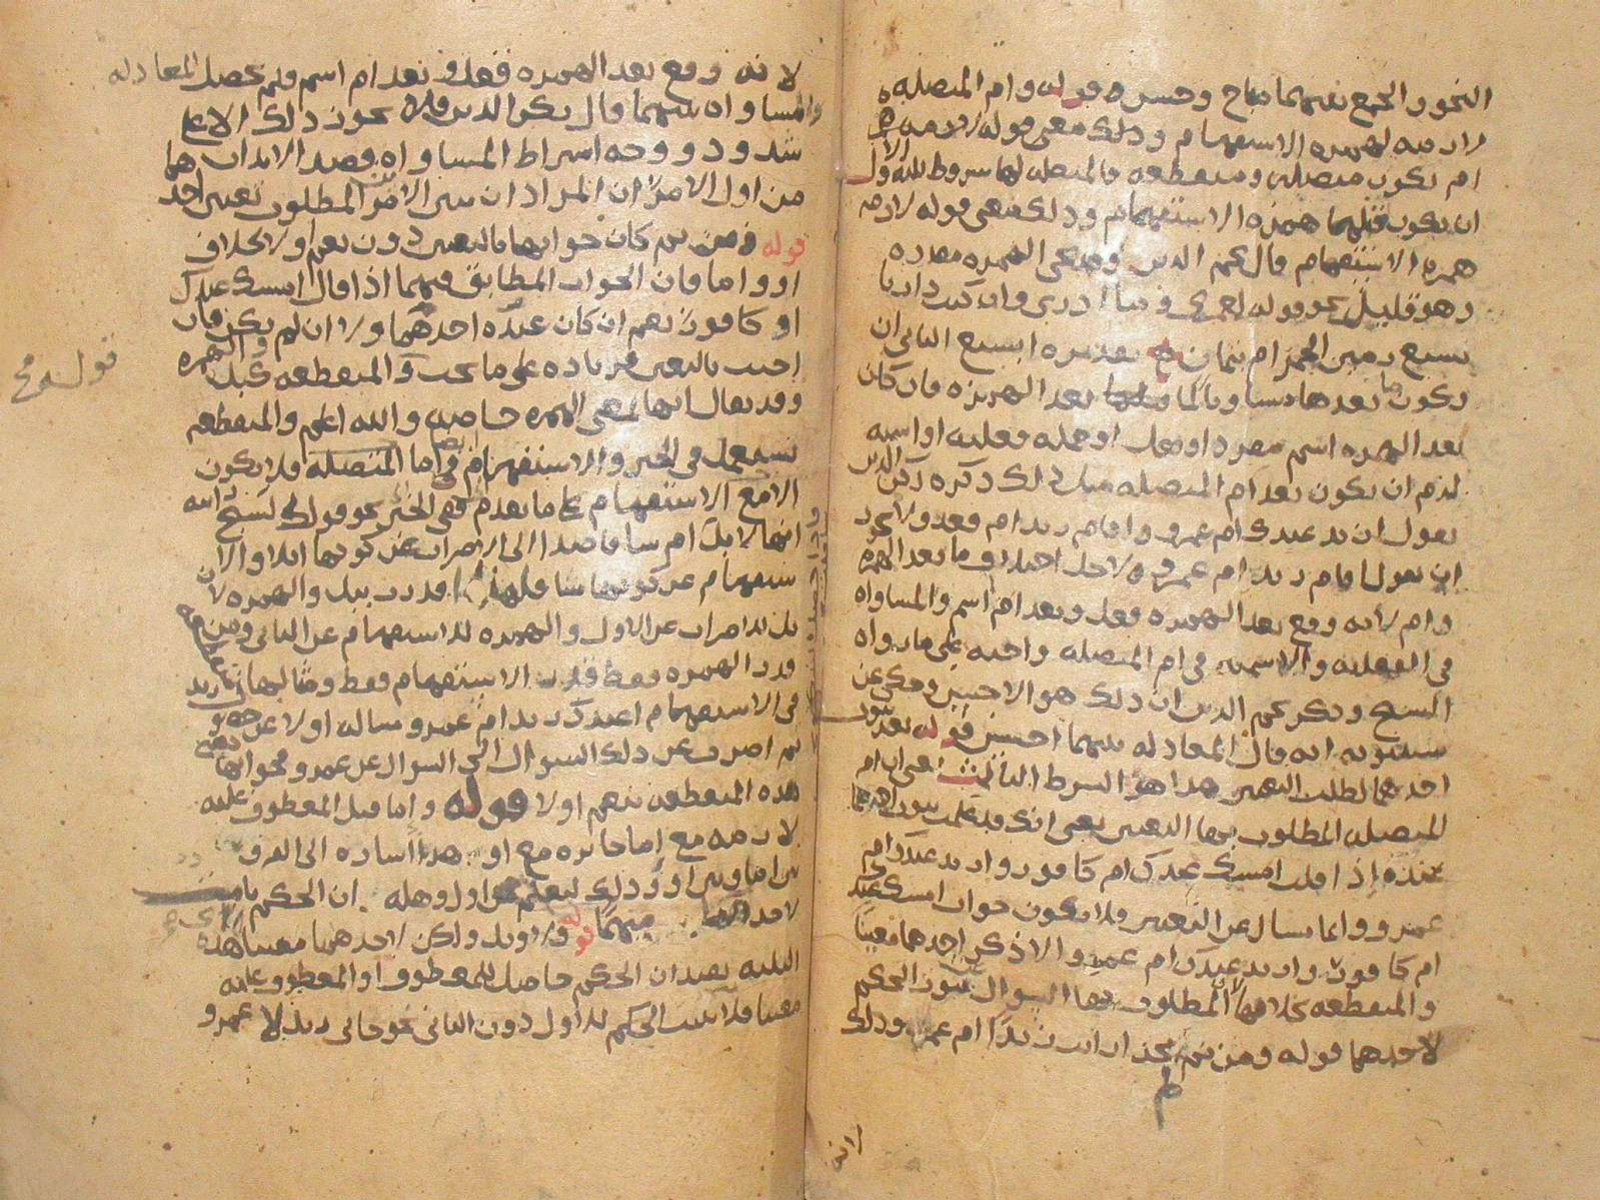 النحو والجمع بينهما مباح وحسن قوله وام المتصله
لازمه لهمزه الاستفهام وذلك معنى قوله لازمه
ام تكون متصله ومنقطعه فالمتصله لها شروط ثلثه الاول
ان يكون قبلها همزه الاستفهام وذلك معنى قوله لازمه
همزه الاستفهام قال نجم الدين وقد تجى الهمزه مقدره
وهو قليل نحو قوله لعمرك ما ادرى وان كنت داريا
بسبع رمين الجمر ام بثمان تقديره ابسبع الثانى ان
يكون ما بعدها مساويا لما بعد الهمزه فان كان
بعد الهمزه اسم مفرد او جمله فعليه او اسميه
لزم ان يكون بعد ام المتصله مثل ذلك ذكره ركن الدين
تقول ازيد عندك ام عمرو واقام زيد ام قعد ولا يجوز
ان تقول اقام زيد ام عمرو لاجل اختلاف ما بعد الهمزه
وام لانه وقع بعد الهمزه فعل وبعد ام اسم والمساواه
فى الفعليه والاسميه فى ام المتصله واجبه على ما رواه
الشيخ وذكر نجم الدين ان ذلك هو الاحسن وحكى عن
سيبويه انه قال المعادله بينهما احسن قوله بعد ثبوت
احدهما لطلب التعيين هذا هو الشرط الثالث يعنى ان ام
المتصله المطلوب بها التعيين يعنى انك قد علمت ثبوت احدهما
عنده اذا قلت امسك عندك ام كافور وازيد عندك ام
عمرو وانما تسال عن التعيين فلا يكون جواب امسك عندك
ام كافور وازيد عندك ام عمرو الا ذكر احدهما معينا
والمنقطعه بخلافها لان المطلوب بها السوال عن ثبوت الحكم
لاحدهما قوله ومن ثم لم يجز ارايت زيدا ام عمرا وذلك
لانه وقع بعد الهمزه فعل وبعد ام اسم فلم تحصل المعادله
والمساواه بينهما قال ركن الدين ولا يجوز ذلك الا على
شذوذ ووجه اشتراط المساواه قصد الايذان بهما
من اول الامر ان المراد من الامرين المطلوب تعيين احد
قوله ومن ثم كان جوابها بالتعيين دون نعم او لا بخلاف
او واما فان الجواب المطابق فيهما اذا قال امسك عندك
او كافور نعم ان كان عنده احدهما ولا ان لم يكن فان
اجبت بالتعيين فزياده على ما يجب والمنقطعه كبل والهمزه
وقد يقال انها بمعنى الهمزه خاصه والله اعلم والمنقطعه
تستعمل فى الخبر والاستفهام اما المتصله فلا يكون
الا مع الاستفهام على ما تقدم ففى الخبر نحو قولك لشبح رايته
انها لابل ام شا قاصدا الى الاضراب عن كونها ابلا والا
ستفهام عن كونها شا فلهذا قدرت ببل والهمزه لان
بل للاضراب عن الاول والهمزه للاستفهام عن الثانى ومن
قدر الهمزه فقط قدر الاستفهام فقط ومثالها
فى الاستفهام اعندك زيد ام عمرو سالت اولا عن حصو
ثم اضربت عن ذلك السوال الى السوال عن عمرو فجوابها
هذه المنقطعه بنعم او لا قوله واما قبل المعطوف عليه
لازمه مع اما جائزه مع او هذا اشاره الى الفرق
بين اما وبين او وذلك ليعلم من اول وهله ان الحكم
لاحد فيهما قوله ولا وبل ولكن لاحدهما معينا هذه
الثلثه تفيد ان الحكم حاصل للمعطوف او المعطوف عليه
معينا فلا تثبت الحكم للاول دون الثانى نحو جانى زيد لا عمرو
قوله صح